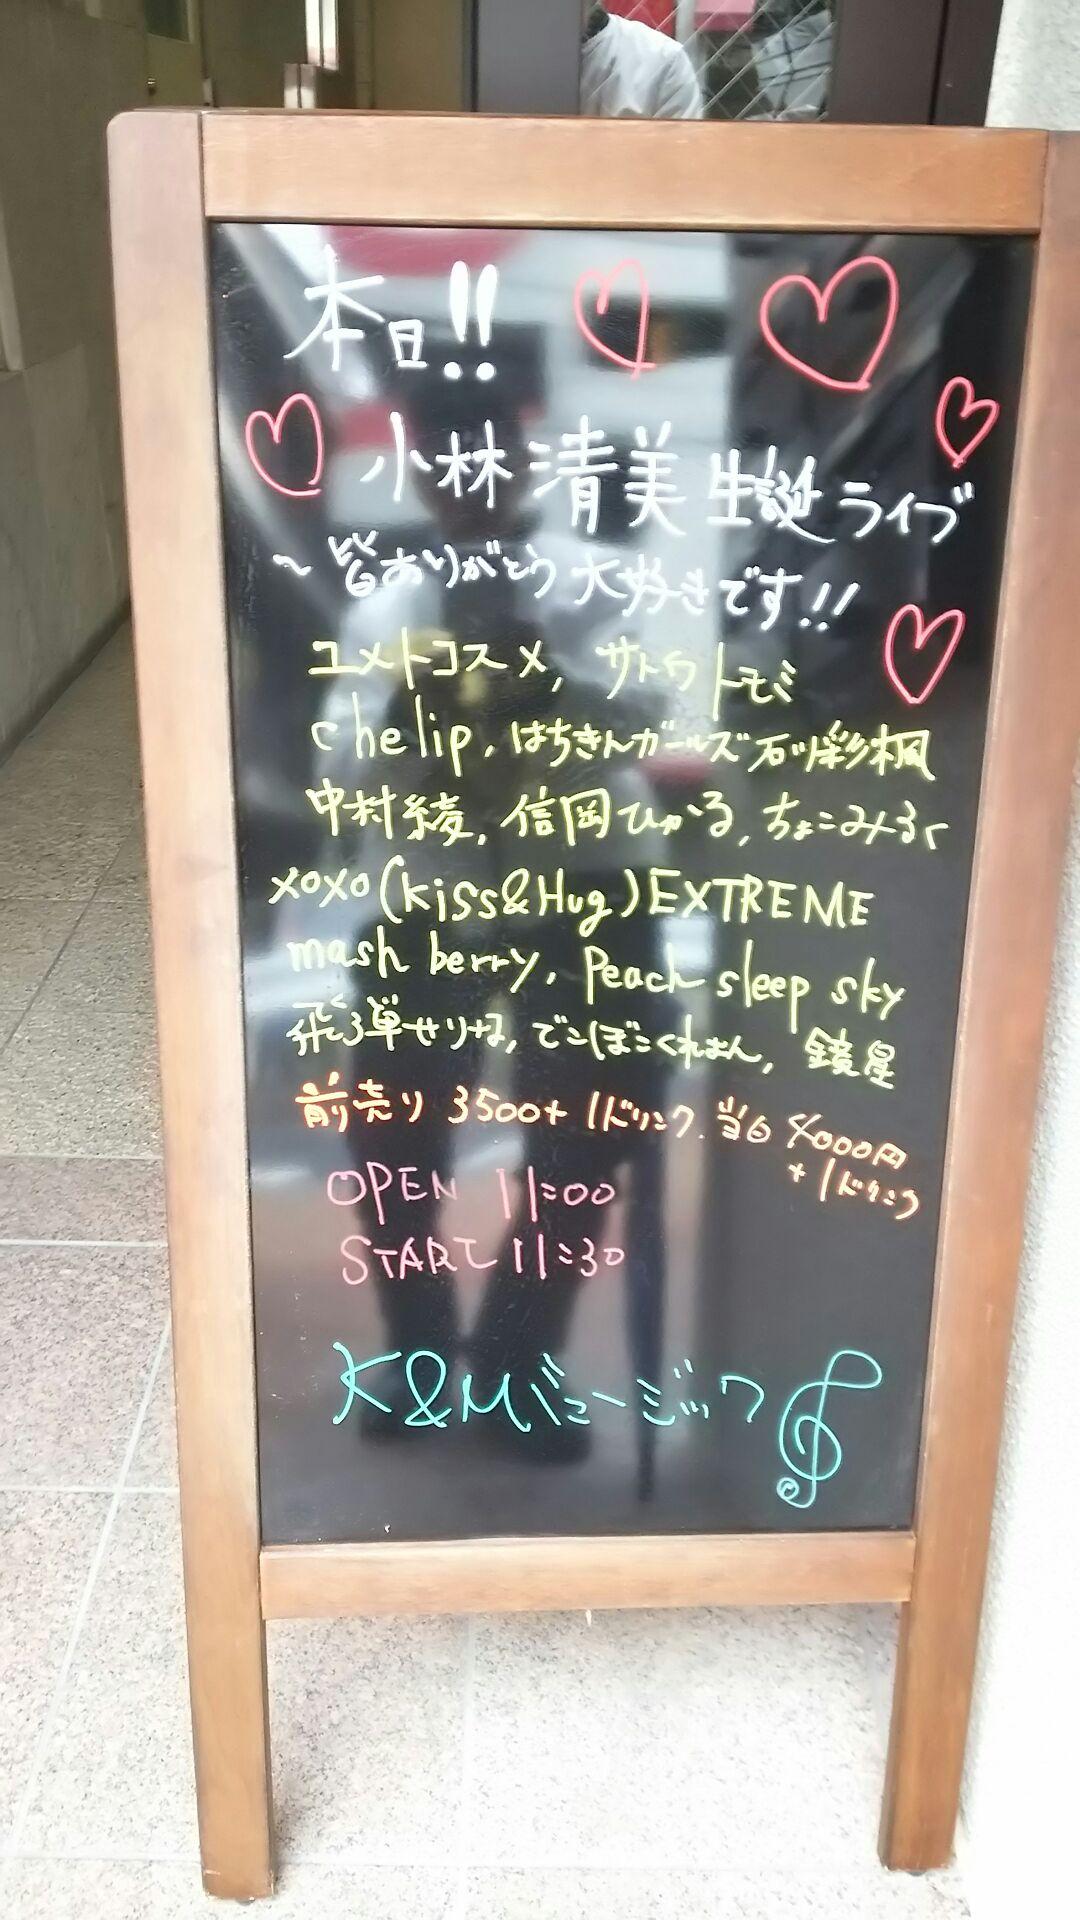 本日!!
小林清美生誕ライブ
～皆ありがとう大好きです!!
ユメトコスメ, サトウトモミ
chelip, はちきんガールズ石川彩楓
中村綾, 信岡ひかる, ちょこみるく
xoxo(Kiss&Hug)EXTREME
mash berry, Peach sleep sky
飛弾せりな, でこぼこくれよん, 鏡星
前売り 3500+1ドリンク. 当日 4000円
+1ドリンク
OPEN 11:00
START 11:30
K&Mミュージック